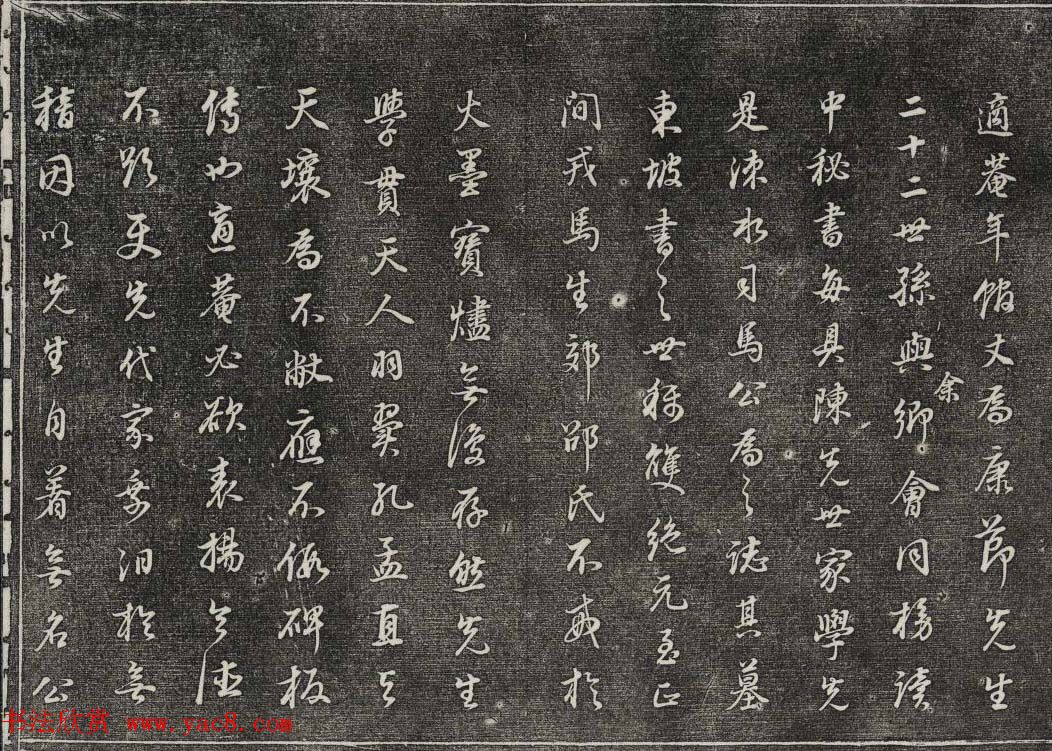 適菴年館丈爲康節先生
二十二世孫與余卿會同榜讀
中秘書每具陳先世家學先
是涑水司馬公爲之誌其墓
東坡書之世稱雙絶元至正
間戎馬生郊邵氏不戒於
火墨寶燼無復存然先生
學貫天人羽翼孔孟直與
天壤爲不敝應不假碑板
傳也適菴必欲表揚令德
不欲使先代家乘汩於無
稽因以先生自著無名公
书法欣赏 www.yac8.com